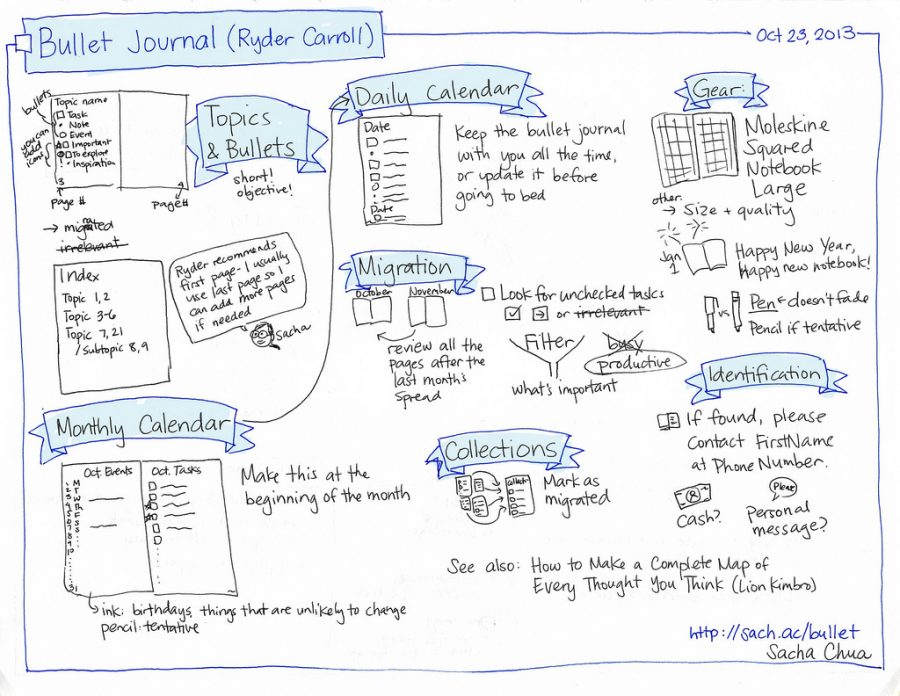 Bullet Journal (Ryder Carroll)
Oct 23, 2013
bullets
you can add icons
Topic name
Task
Note
Event
Important
To explore
! Inspiration
3
4
Page #
Page #
→ migrated
irrelevant
Topics
& Bullets
short!
objective!
Index
Topic 1, 2
Topic 3-6
Topic 7, 21
/ Subtopic 8, 9
Ryder recommends
first page - I usually
use last page so I
can add more pages
if needed
Sacha
Monthly Calendar
Oct. Events
Oct. Tasks
1 M
2 T
3 W
4 Th
5 F
6 S
7 S
8
9
10
31
Make this at the
beginning of the month
ink: birthdays, things that are unlikely to change
pencil: tentative
Daily Calendar
Date
Date
Keep the bullet journal
with you all the time,
or update it before
going to bed
Migration
October
November
review all the
pages after the
last month's
spread
Look for unchecked tasks
or irrelevant
Filter
what's important
busy
productive
Collections
Collection
Mark as
migrated
Gear:
Moleskine
Squared
Notebook
Large
other:
→ Size + quality
Jan
1
Happy New Year,
Happy new notebook!
vs
Pen ← doesn't fade
Pencil if tentative
Identification
If found, please
contact FirstName
at Phone Number.
Cash?
Please
Personal
message?
See also: How to Make a Complete Map of
Every Thought You Think (Lion Kimbro)
http://sach.ac/bullet
Sacha Chua